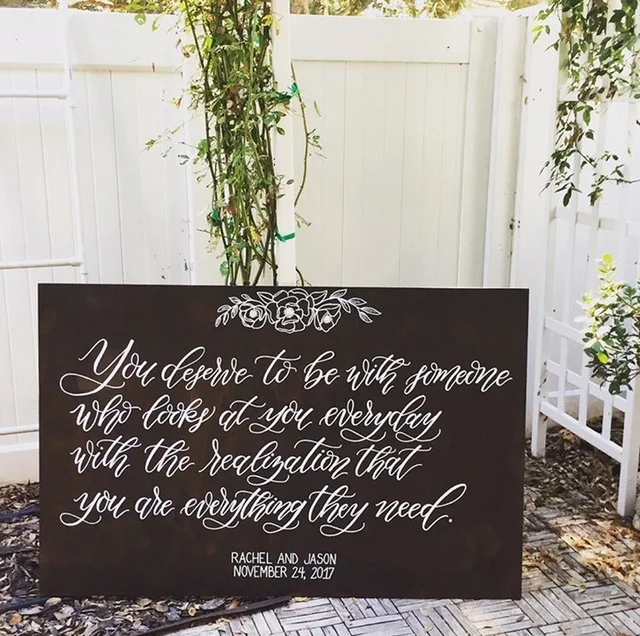 You deserve to be with someone
who looks at you everyday
with the realization that
you are everything they need.
RACHEL AND JASON
NOVEMBER 24, 2017